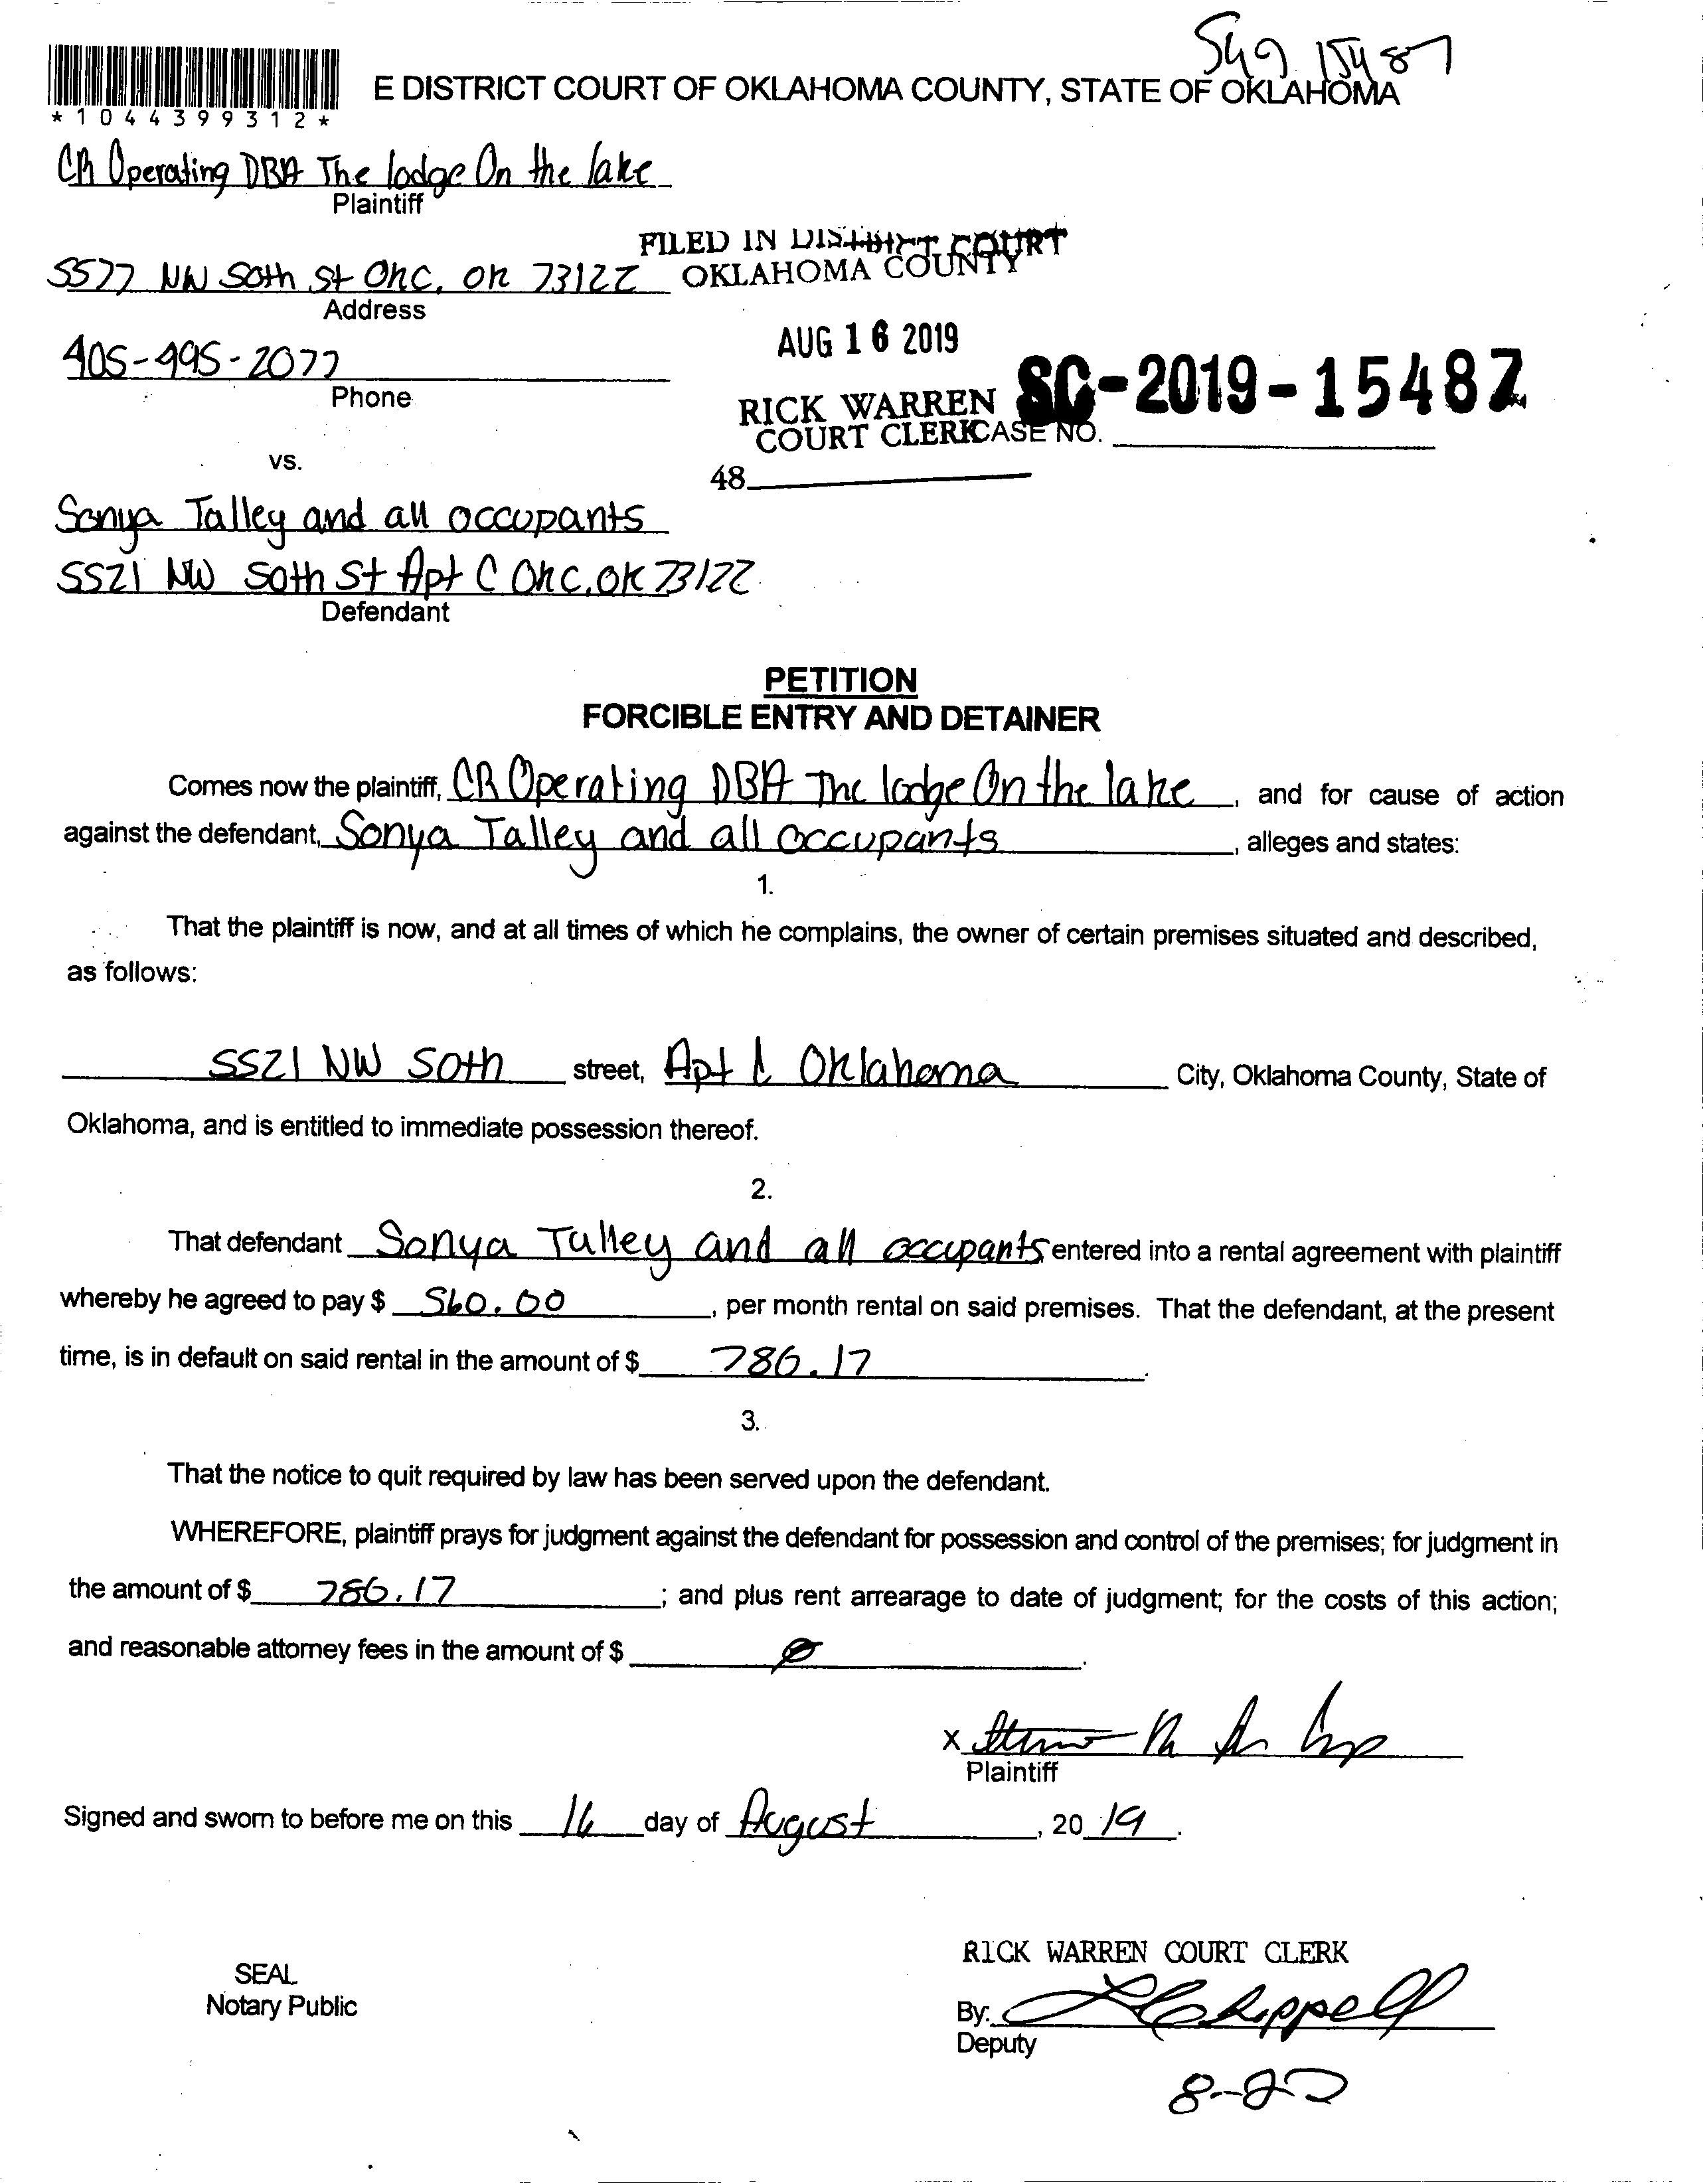 S49 15487
E DISTRICT COURT OF OKLAHOMA COUNTY, STATE OF OKLAHOMA
*1044399312*
CR Operating DBA The lodge On the lake
Plaintiff
FILED IN DISTRICT COURT
OKLAHOMA COUNTY
5577 NW 50th St OKC, OK 73122
Address
AUG 16 2019
405-495-2077
Phone
SC-2019-15487
RICK WARREN
COURT CLERK CASE NO.
vs.
48
Sonya Talley and all occupants
5521 NW 50th St Apt C OKC, OK 73122
Defendant
PETITION
FORCIBLE ENTRY AND DETAINER
Comes now the plaintiff, CR Operating DBA The lodge On the lake, and for cause of action
against the defendant, Sonya Talley and all occupants, alleges and states:
1.
That the plaintiff is now, and at all times of which he complains, the owner of certain premises situated and described,
as follows:
5521 NW 50th street, Apt C Oklahoma City, Oklahoma County, State of
Oklahoma, and is entitled to immediate possession thereof.
2.
That defendant Sonya Talley and all occupants entered into a rental agreement with plaintiff
whereby he agreed to pay $ 560.00, per month rental on said premises. That the defendant, at the present
time, is in default on said rental in the amount of $ 786.17.
3.
That the notice to quit required by law has been served upon the defendant.
WHEREFORE, plaintiff prays for judgment against the defendant for possession and control of the premises; for judgment in
the amount of $ 786.17; and plus rent arrearage to date of judgment; for the costs of this action;
and reasonable attorney fees in the amount of $ Ø.
X
Plaintiff
Signed and sworn to before me on this 16 day of August, 20 19.
RICK WARREN COURT CLERK
SEAL
Notary Public
By:
Deputy